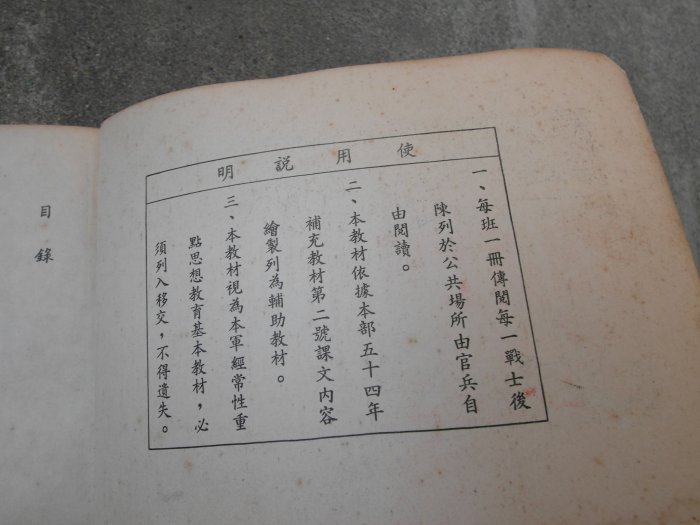 使用說明
一、每班一冊傳閱每一戰士後
陳列於公共場所由官兵自
由閱讀。
二、本教材依據本部五十四年
補充教材第二號課文內容
繪製列為輔助教材。
三、本教材視為本軍經常性重
點思想教育基本教材，必
須列入移交，不得遺失。
目錄